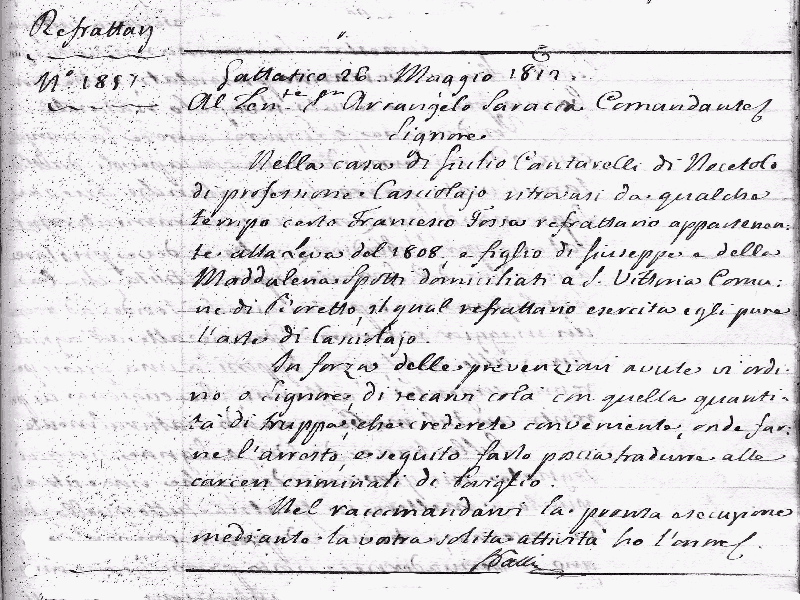 Refrattarj
N.° 1857.
Gattatico 26. Maggio 1812.
Al Ten.te S.r Arcangelo Saracca Comandante
Signore
Nella casa di Giulio Cantarelli di Nocetolo
di professione Casciolajo ritrovasi da qualche
tempo certo Francesco Fossa refrattario appartenen:
te alla Leva del 1808, e figlio di Giuseppe e della
Maddalena Spotti domiciliati a S. Vittoria Comu:
ne di Pioretto, il qual refrattario esercita egli pure
l'arte di Casciolajo.
In forza delle prevenzioni avute vi ordi:
no o Signore di recarvi colà con quella quanti:
tà di truppa che crederete conveniente, onde far:
ne l'arresto, e seguito farlo poscia tradurre alle
carceri criminali di Poviglio.
Nel raccomandarvi la pronta esecuzione
mediante la vostra solita attività ho l'onore